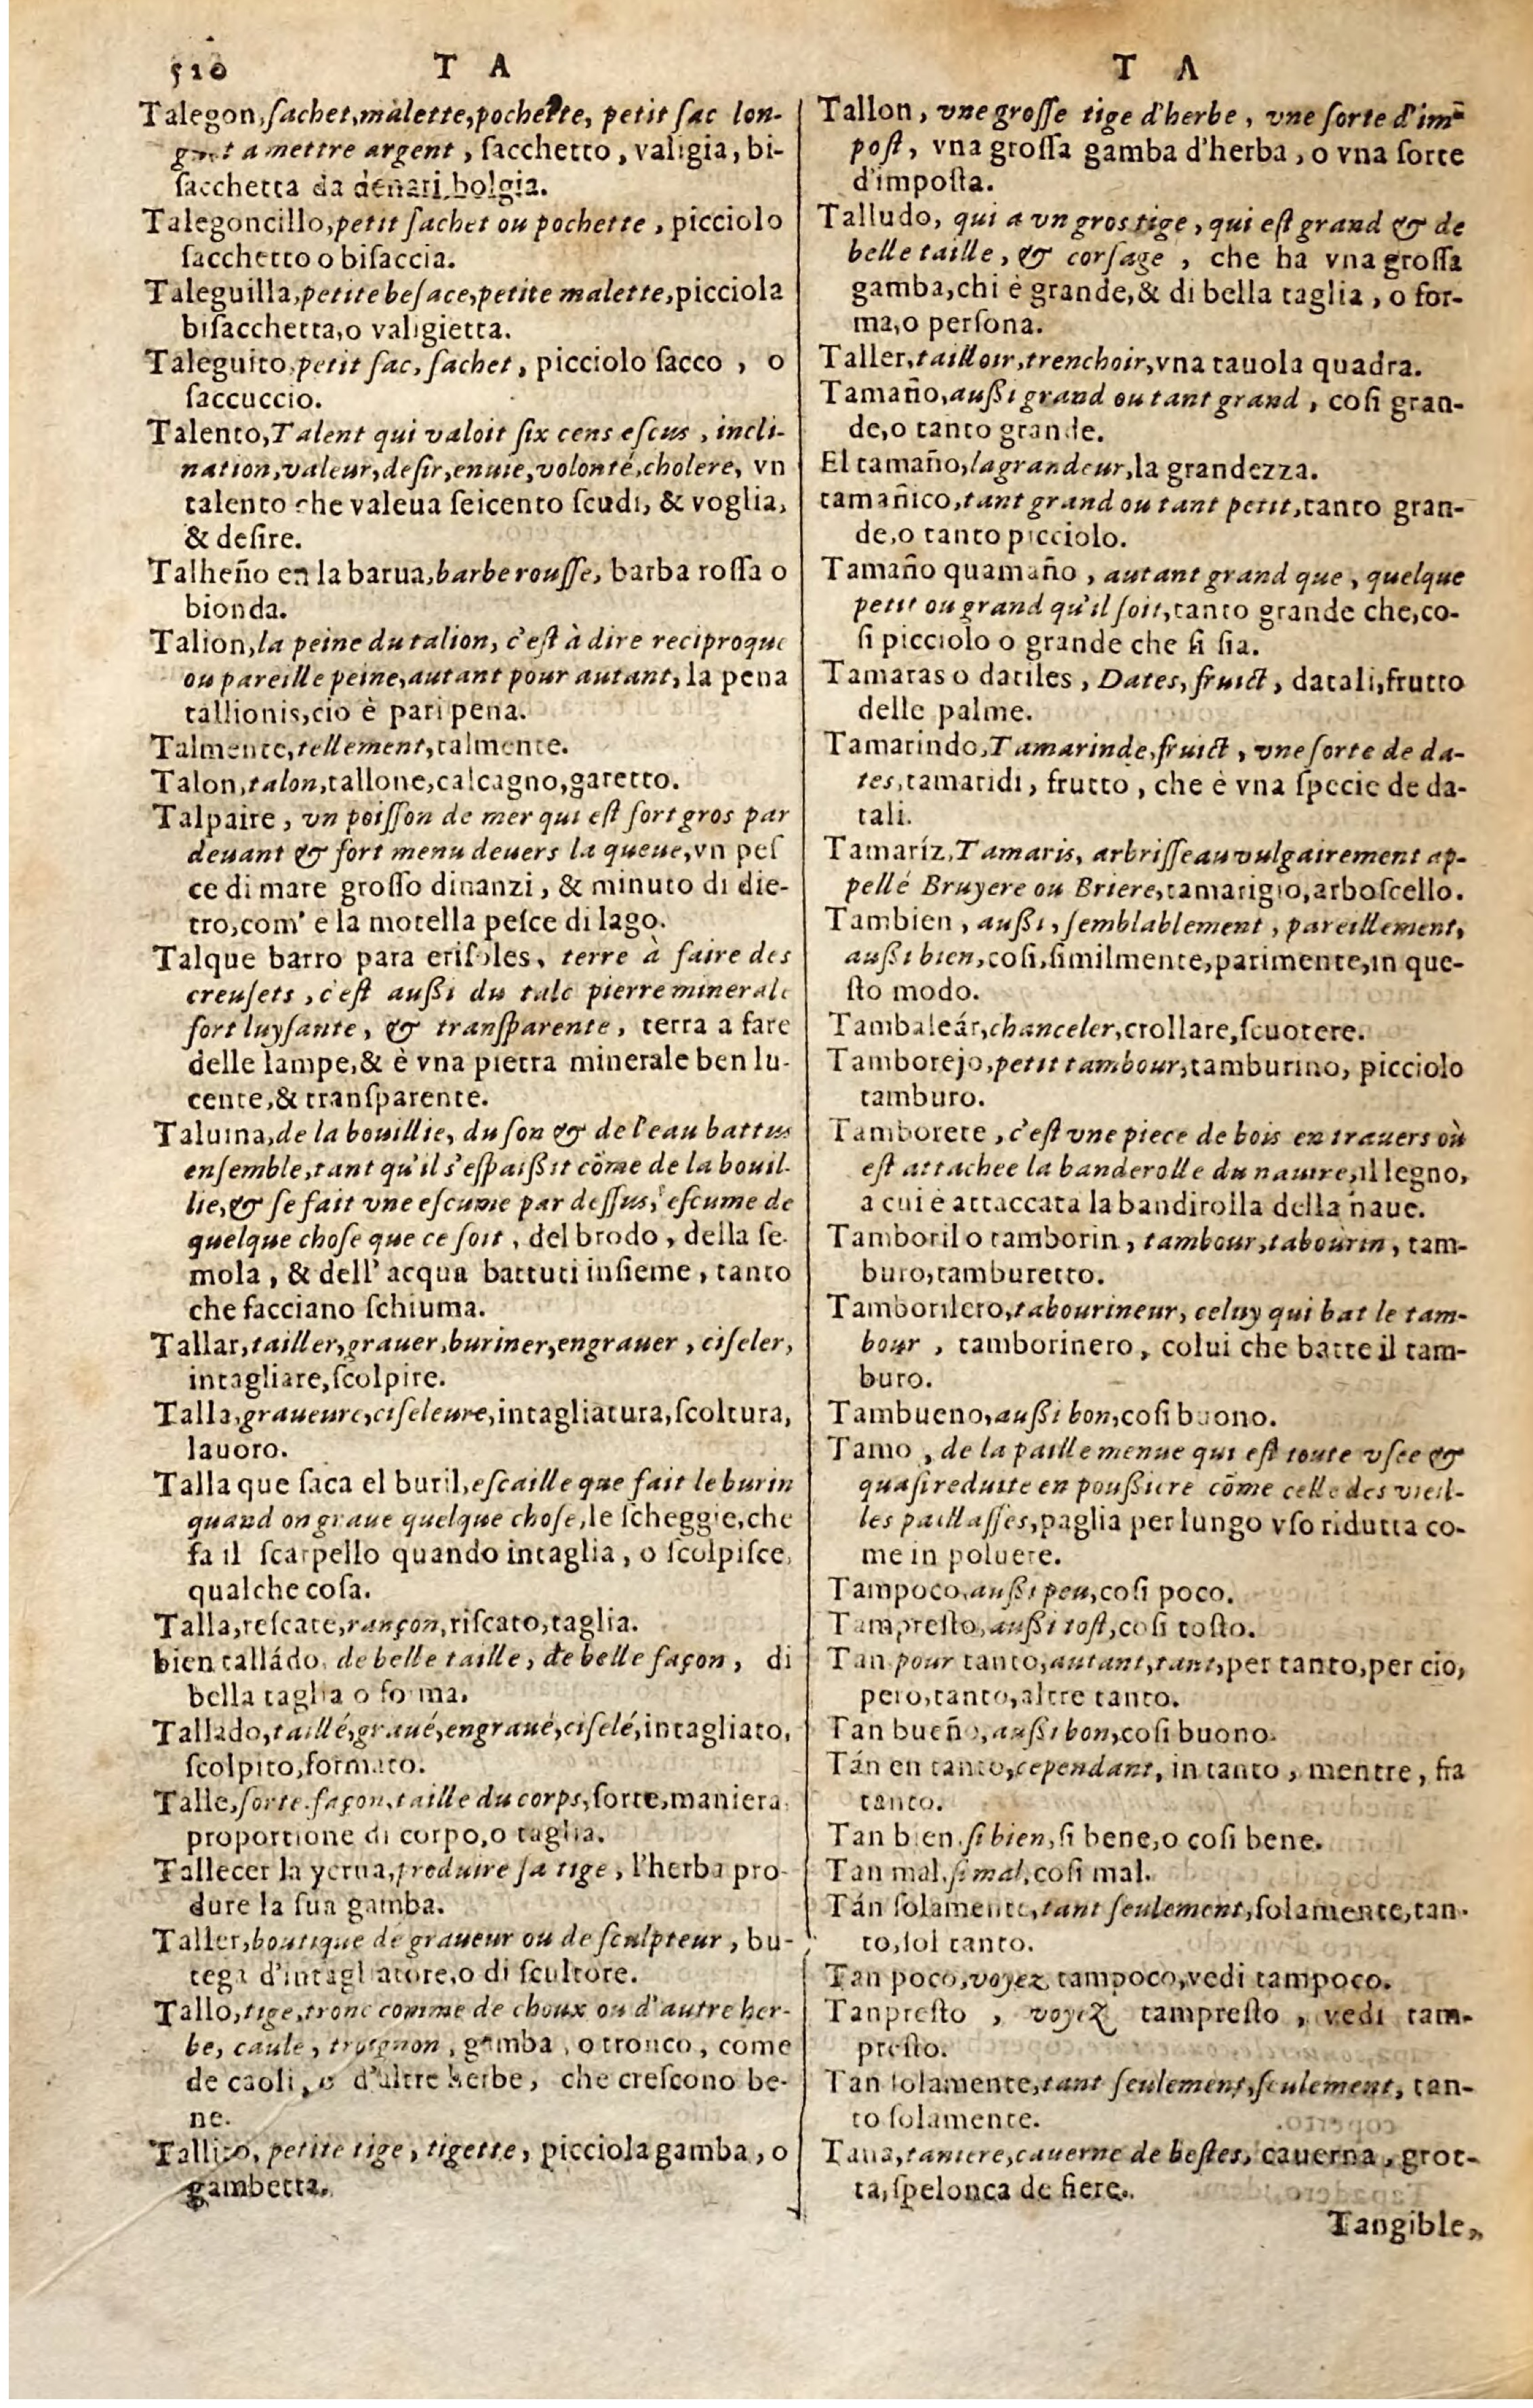 510 T A
Talegon, ſachet, malette, pochette, petit ſac lon-
guet a mettre argent, ſacchetto, valigia, bi-
ſacchetta da denari, bolgia.
Talegoncillo, petit ſachet ou pochette, picciolo
ſacchetto o biſaccia.
Taleguilla, petite beſace, petite malette, picciola
biſacchetta, o valigietta.
Taleguito, petit ſac, ſachet, picciolo ſacco, o
ſaccuccio.
Talento, Talent qui valoit ſix cens eſcus, incli-
nation, valeur, deſir, enuie, volonté, cholere, vn
talento che valeua ſeicento ſcudi, & voglia,
& deſire.
Talheño en la barua, barbe rouſſe, barba roſſa o
bionda.
Talion, la peine du talion, c'eſt à dire reciproque
ou pareille peine, autant pour autant, la pena
tallionis, cio è pari pena.
Talmente, tellement, talmente.
Talon, talon, tallone, calcagno, garetto.
Talpaire, vn poiſſon de mer qui eſt fort gros par
deuant & fort menu deuers la queue, vn peſ
ce di mare groſſo dinanzi, & minuto di die-
tro, com' e la motella peſce di lago.
Talque barro para criſoles, terre à faire des
creuſets, c'eſt außi du talc pierre minerale
fort luyſante, & tranſparente, terra a fare
delle lampe, & è vna pietra minerale ben lu-
cente, & tranſparente.
Taluina, de la bouillie, du ſon & de l'eau battus
enſemble, tant qu'il s'eſpaißit cõme de la bouil-
lie, & ſe fait vne eſcume par deſſus, eſcume de
quelque choſe que ce ſoit, del brodo, della ſe-
mola, & dell' acqua battuti inſieme, tanto
che facciano ſchiuma.
Tallar, tailler, grauer, buriner, engrauer, ciſeler,
intagliare, ſcolpire.
Talla, graueure, ciſeleure, intagliatura, ſcoltura,
lauoro.
Talla que ſaca el buril, eſcaille que fait le burin
quand on graue quelque choſe, le ſcheggie, che
fa il ſcarpello quando intaglia, o ſcolpiſce,
qualche coſa.
Talla, reſcate, rançon, riſcato, taglia.
bien talládo, de belle taille, de belle façon, di
bella taglia o forma.
Tallado, taillé, graué, engraué, ciſelé, intagliato,
ſcolpito, formato.
Talle, ſorte, façon, taille du corps, ſorte, maniera,
proportione di corpo, o taglia.
Tallecer la yerua, produire ſa tige, l'herba pro-
dure la ſua gamba.
Taller, boutique de graueur ou de ſculpteur, bu-
tega d'intagliatore, o di ſcultore.
Tallo, tige, tronc comme de choux ou d'autre her-
be, caule, troignon, gamba, o tronco, come
de caoli, o d'altre herbe, che creſcono be-
ne.
Tallito, petite tige, tigette, picciola gamba, o
gambetta.
T A
Tallon, vne groſſe tige d'herbe, vne ſorte d'im-
poſt, vna groſſa gamba d'herba, o vna ſorte
d'impoſta.
Talludo, qui a vn gros tige, qui eſt grand & de
belle taille, & corſage, che ha vna groſſa
gamba, chi è grande, & di bella taglia, o for-
ma, o perſona.
Taller, tailloir, trenchoir, vna tauola quadra.
Tamaño, außi grand ou tant grand, coſi gran-
de, o tanto grande.
El tamaño, la grandeur, la grandezza.
tamañico, tant grand ou tant petit, tanto gran-
de, o tanto picciolo.
Tamaño quamaño, autant grand que, quelque
petit ou grand qu'il ſoit, tanto grande che, co-
ſi picciolo o grande che ſi ſia.
Tamaras o datiles, Dates, fruict, datali, frutto
delle palme.
Tamarindo, Tamarinde, fruict, vne ſorte de da-
tes, tamaridi, frutto, che è vna ſpecie de da-
tali.
Tamaríz, Tamaris, arbriſſeau vulgairement ap-
pellé Bruyere ou Briere, tamarigio, arboſcello.
Tambien, außi, ſemblablement, pareillement,
außi bien, coſi, ſimilmente, parimente, in que-
ſto modo.
Tambaleár, chanceler, crollare, ſcuotere.
Tamborejo, petit tambour, tamburino, picciolo
tamburo.
Tamborete, c'eſt vne piece de bois en trauers où
eſt attachee la banderolle du nauire, il legno,
a cui è attaccata la bandirolla della naue.
Tamboril o tamborin, tambour, tabourin, tam-
buro, tamburetto.
Tamborilero, tabourineur, celuy qui bat le tam-
bour, tamborinero, colui che batte il tam-
buro.
Tambueno, außi bon, coſi buono.
Tamo, de la paille menue qui eſt toute vſee &
quaſi reduite en poußiere cõme celle des vieil-
les paillaſſes, paglia per lungo vſo ridutta co-
me in poluere.
Tampoco, außi peu, coſi poco.
Tampreſto, außi toſt, coſi toſto.
Tan pour tanto, autant, tant, per tanto, per cio,
pero, tanto, altre tanto.
Tan bueño, außi bon, coſi buono.
Tán en tanto, cependant, in tanto, mentre, fra
tanto.
Tan bien, ſi bien, ſi bene, o coſi bene.
Tan mal, ſi mal, coſi mal.
Tán ſolamente, tant ſeulement, ſolamente, tan-
to, ſol tanto.
Tan poco, voyez tampoco, vedi tampoco.
Tanpreſto, voyez tampreſto, vedi tam-
preſto.
Tan ſolamente, tant ſeulement, ſeulement, tan-
to ſolamente.
Tana, taniere, cauerne de beſtes, cauerna, grot-
ta, ſpelonca de fiere.
Tangible,